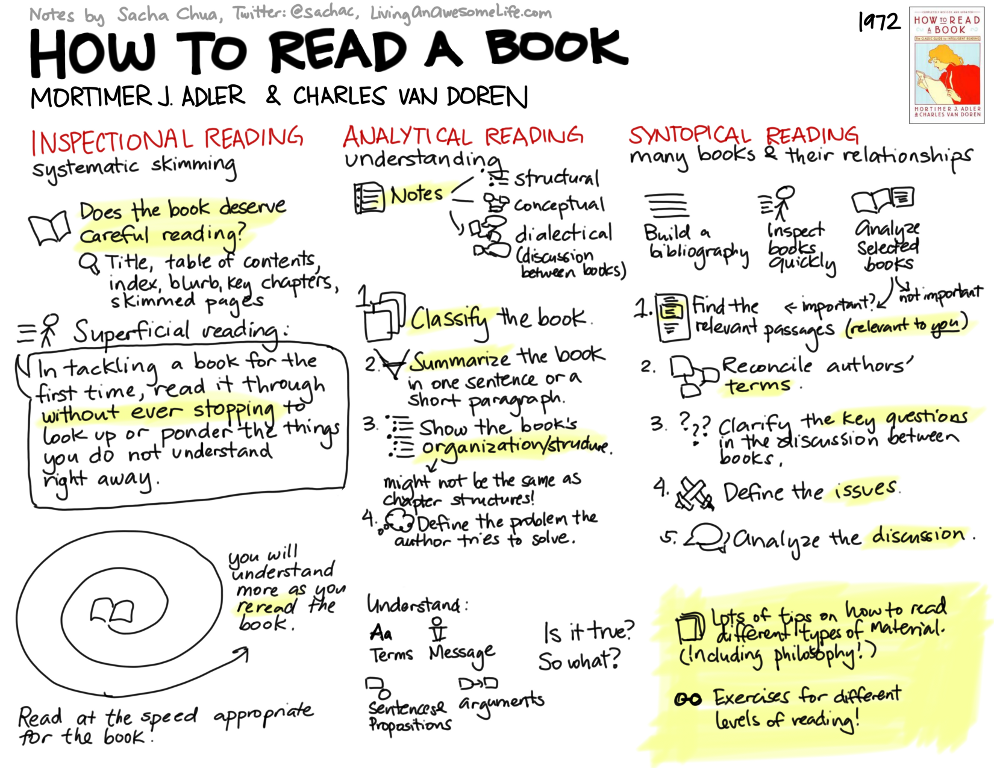 Notes by Sacha Chua, Twitter: @sachac, LivingAnAwesomeLife.com
HOW TO READ A BOOK
MORTIMER J. ADLER & CHARLES VAN DOREN
1972
HOW TO READ
A BOOK
MORTIMER J. ADLER
& CHARLES VAN DOREN
INSPECTIONAL READING
systematic skimming
Does the book deserve
careful reading?
Title, table of contents,
index, blurb, key chapters,
skimmed pages
Superficial reading:
In tackling a book for the
first time, read it through
without ever stopping to
look up or ponder the things
you do not understand
right away.
you will
understand
more as you
reread the
book.
Read at the speed appropriate
for the book!
ANALYTICAL READING
understanding
Notes
structural
conceptual
dialectical
(discussion
between books)
1.
Classify the book.
2. Summarize the book
in one sentence or a
short paragraph.
3. Show the book's
organization/structure.
might not be the same as
chapter structures!
4. Define the problem the
author tries to solve.
Understand:
Aa
Terms
Message
Sentences &
Propositions
arguments
Is it true?
So what?
SYNTOPICAL READING
many books & their relationships
Build a
bibliography
Inspect
books
quickly
Analyze
selected
books
1. Find the
relevant passages (relevant to you)
← important?
not important
2. Reconcile authors'
terms.
3. ? ? ? Clarify the key questions
in the discussion between
books.
4. Define the issues.
5. Analyze the discussion.
Lots of tips on how to read
different types of material.
(Including philosophy!)
Exercises for different
levels of reading!